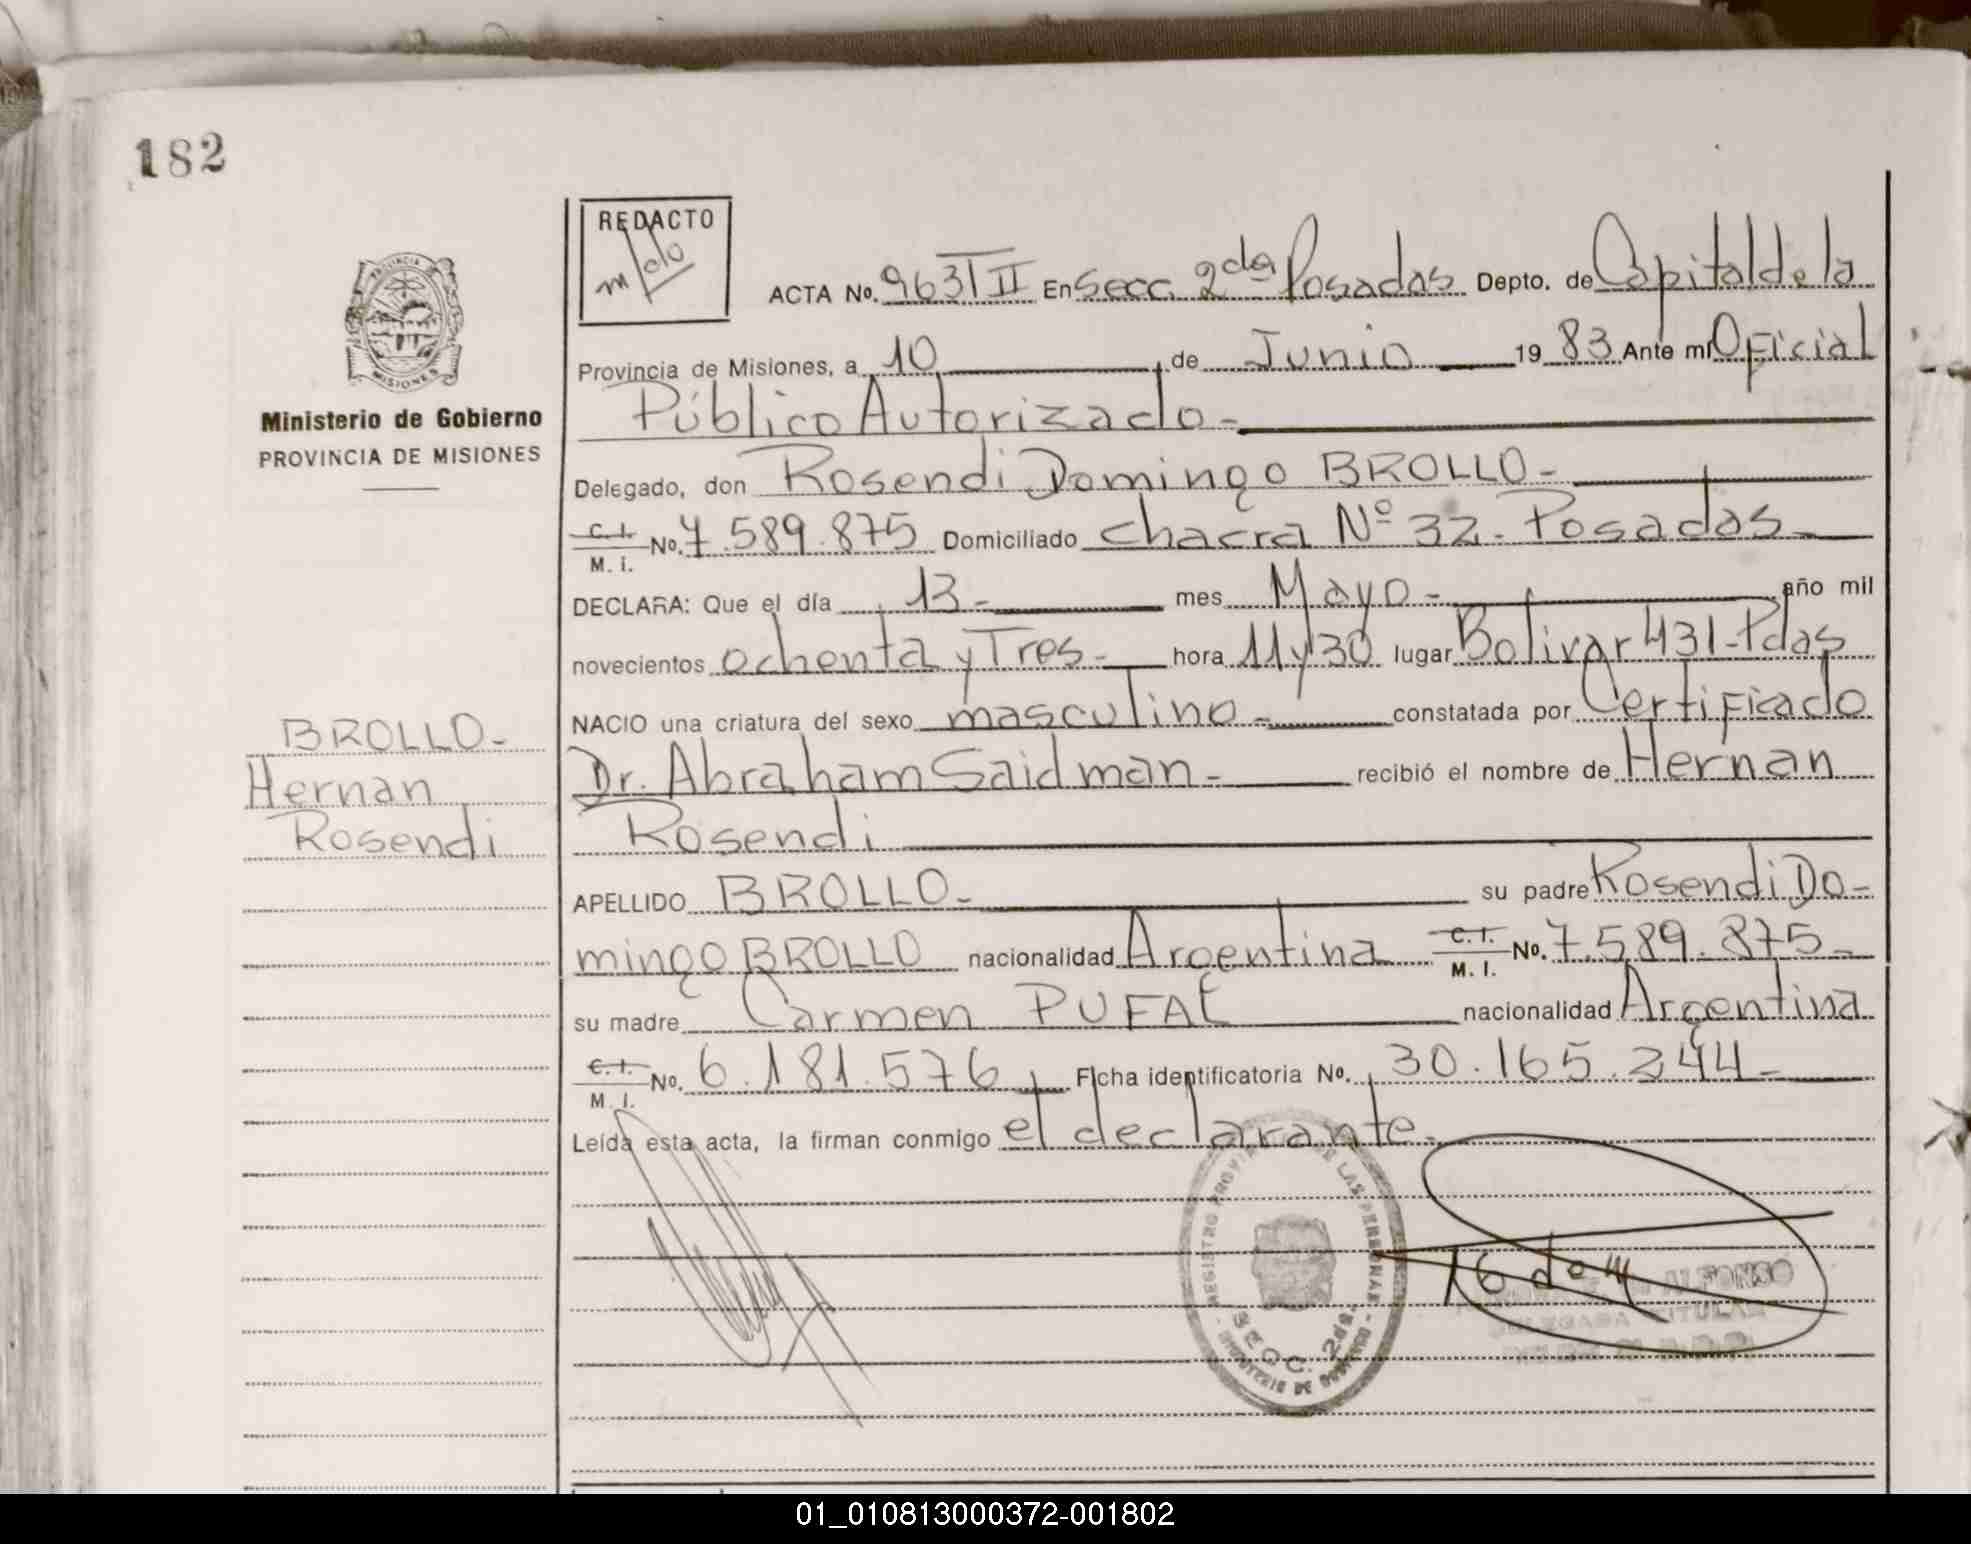 182
REDACTO
ACTA No. 963 T II En Secc. 2da Posadas Depto. de Capital de la
Provincia de Misiones, a 10 de Junio 19 83 Ante mí Oficial
Público Autorizado -
PROVINCIA DE MISIONES
Ministerio de Gobierno
PROVINCIA DE MISIONES
Delegado, don Rosendi Domingo BROLLO -
C. I. M. I. No. 7.589.875 Domiciliado chacra Nº 32 - Posadas -
DECLARA: Que el día 13 - mes Mayo - año mil
novecientos ochenta y Tres - hora 11 y 30 lugar Bolivar 431 - Pdas
NACIO una criatura del sexo masculino - constatada por Certificado
Dr. Abraham Saidman - recibió el nombre de Hernan
Rosendi
BROLLO -
Hernan
Rosendi
APELLIDO BROLLO - su padre Rosendi Do-
mingo BROLLO nacionalidad Argentina C. I. M. I. No. 7.589.875 -
su madre Carmen PUFAL nacionalidad Argentina
C. I. M. I. No. 6.181.576 Ficha identificatoria No. 30.165.244 -
Leída esta acta, la firman conmigo el declarante -
REGISTRO PROVINCIAL DE LAS PERSONAS
SECC. 2da.
MINISTERIO DE GOBIERNO
ALFONSO
TITULAR
01_010813000372-001802